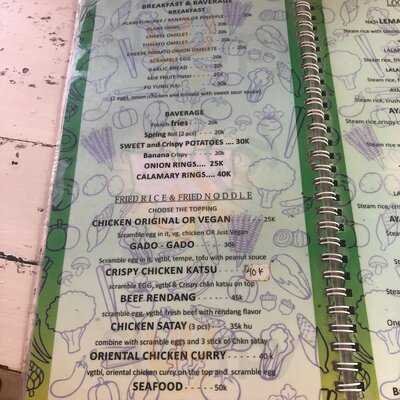 BREAKFAST & BAVERAGE
BREAKFAST
PLAIN OMELET
CHEES OMELET
TOMATO OMELET
CHEESE TOMATO ONION OMELETE
SCRAMBLE EGG 20k
GARLIC BREAD 20k
MIX FRUIT 20k
FU YUNG HAI 30k
BAVERAGE
fries - - - - 20k
Spring Roll (2 pcs) - - - - 20k
SWEET and Crispy POTATOES .... 30K
Banana Crispy - - - 20k
ONION RINGS.... 25K
CALAMARY RINGS.... 40K
FRIED RICE & FRIED NODDLE
CHOOSE THE TOPPING
CHICKEN ORIGINAL OR VEGAN - - - - 25K
Scramble egg in it, vg. chicken OR Just Vegan
GADO - GADO - - - 30k
Scramble egg in it, vgtbl, tempe, tofu with peanut souce
CRISPY CHICKEN KATSU 40K
scramble EGG, vgtbl & Crispy chkn katsu on top
BEEF RENDANG - - - - 45k
scramble egg, vgtbl, fresh beef with rendang flavor
CHICKEN SATAY (3 pcs) - - - 35k hu
combine with scramble eggs and 3 stick of Chkn satay
ORIENTAL CHICKEN CURRY - - - - 40 k
vgtbl, oriental chicken curry on the top and scramble egg
SEAFOOD - - - - 50k
LEMA
Steam rice with
LALA
Steam rice, crush
AYA
Steam rice,crispy
LALA
Steam rice,
Steam rice,
AYA
One
Ba